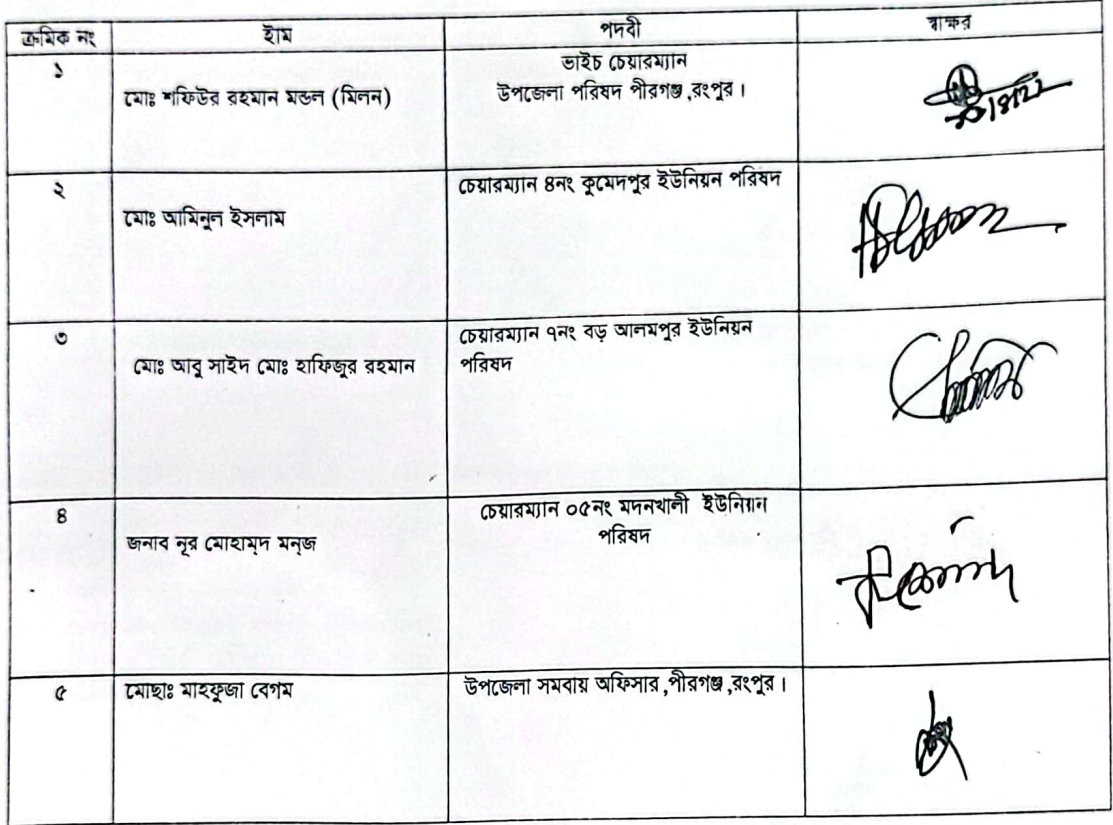 ক্রমিক নং	ইাম	পদবী	স্বাক্ষর
১	মোঃ শফিউর রহমান মন্ডল (মিলন)	ভাইচ চেয়ারম্যান
উপজেলা পরিষদ পীরগঞ্জ ,রংপুর ।
২	মোঃ আমিনুল ইসলাম	চেয়ারম্যান ৪নং কুমেদপুর ইউনিয়ন পরিষদ
৩	মোঃ আবু সাইদ মোঃ হাফিজুর রহমান	চেয়ারম্যান ৭নং বড় আলমপুর ইউনিয়ন
পরিষদ
৪	জনাব নূর মোহাম্দ মন্জ	চেয়ারম্যান ০৫নং মদনখালী ইউনিয়ন
পরিষদ
৫	মোছাঃ মাহফুজা বেগম	উপজেলা সমবায় অফিসার ,পীরগঞ্জ ,রংপুর ।